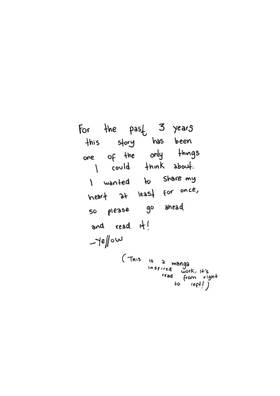 For the past 3 years
this story has been
one of the only things
I could think about.
I wanted to share my
heart at least for once,
so please go ahead
and read it!
-Yellow
(This is a manga
inspired work, it's
read from right
to left!)